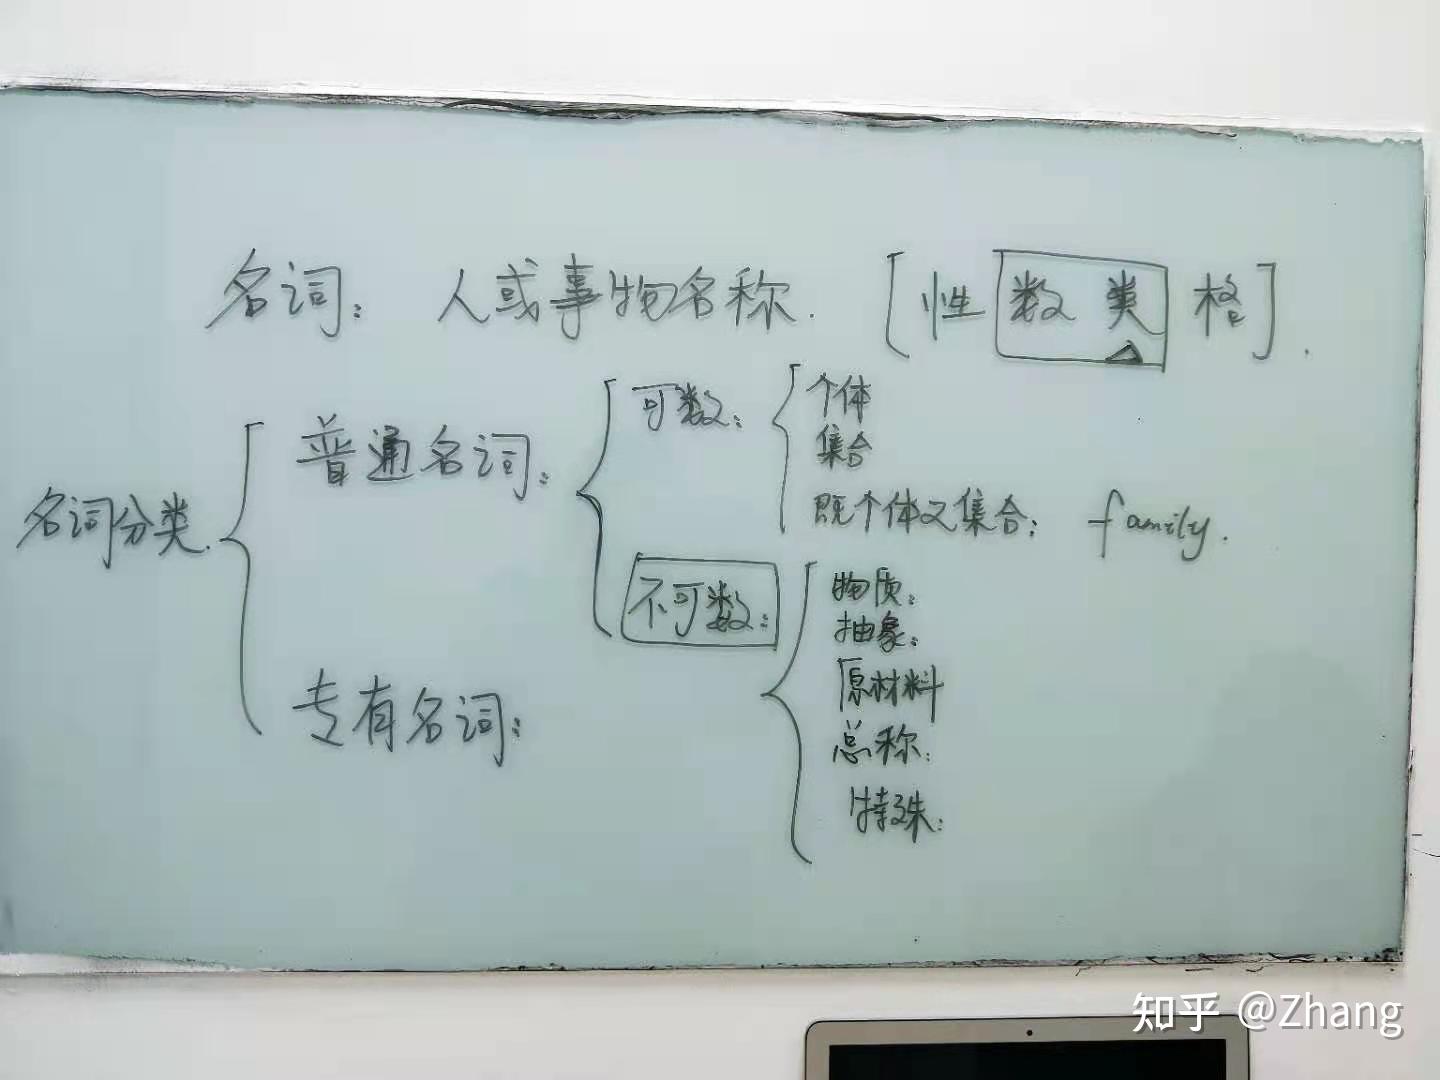 名词：人或事物名称. [性 数 类 格].
名词分类.
普通名词：
可数：
个体
集合
既个体又集合：family.
不可数：
物质：
抽象：
原材料
总称：
特殊：
专有名词：
知乎 @Zhang